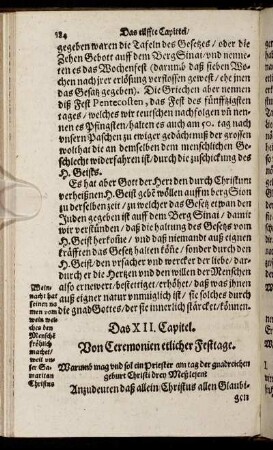 184 Das eilffte Capitel/
gegeben waren die Tafeln des Gesetzes/ oder die
Zehen Gebott auff dem Berg Sinai/ vnd nenne-
ten es das Wochenfest (darumb daß sieben Wo-
chen nach jrer erlösung verflossen gewest/ ehe jnen
das Gesatz gegeben). Die Griechen aber nennen
diß Fest Pentecosten, das Fest des fünfftzigsten
tages/ welches wir teutschen nachfolgen vñ nenn-
en es Pfingsten/ halten es auch am 50. tag nach
vnsern Paschen zu ewiger gedächtnuß der grossen
wolthat die an demselben dem menschlichen Ge-
schlecht widerfahren ist/ durch die zuschickung des
H. Geists.
Es hat aber Gott der Herr den durch Christum
verheißnen H. Geist gebē wöllen auff dem berg Sion
zu derselben zeit/ zu welcher das Gesatz etwan den
Juden gegeben ist auff dem Berg Sinai/ damit
wir verstünden/ daß die haltung des Gesatz vom
H. Geist herkome/ vnd daß niemandt auß eignen
kräfften das Gesatz halten köñe/ sonder durch den
H. Geist/ den vrsacher vnd wercker der liebe/ dar-
durch er die Hertzen vnd den willen der Menschen
also ernewert/ befestiget/ erhöhet/ daß was jhnen
auß eigner natur vnmüglich ist/ sie solches durch
die gnad Gottes/ der sie innerlich stärcket/ können.
Das XII. Capitel.
Von Ceremonien etlicher Festtage.
Wein-
nacht hat
seinen na-
men vom
wein wel-
ches den
Mensche
frölich
machet/
weil vn-
ser Sa-
maritan
Christus
Warumb mag vnd sol ein Priester am tag der gnadreichen
geburt Christi drey Meß lesen?
Anzudeuten daß allein Christus allen Glaubi-
gen